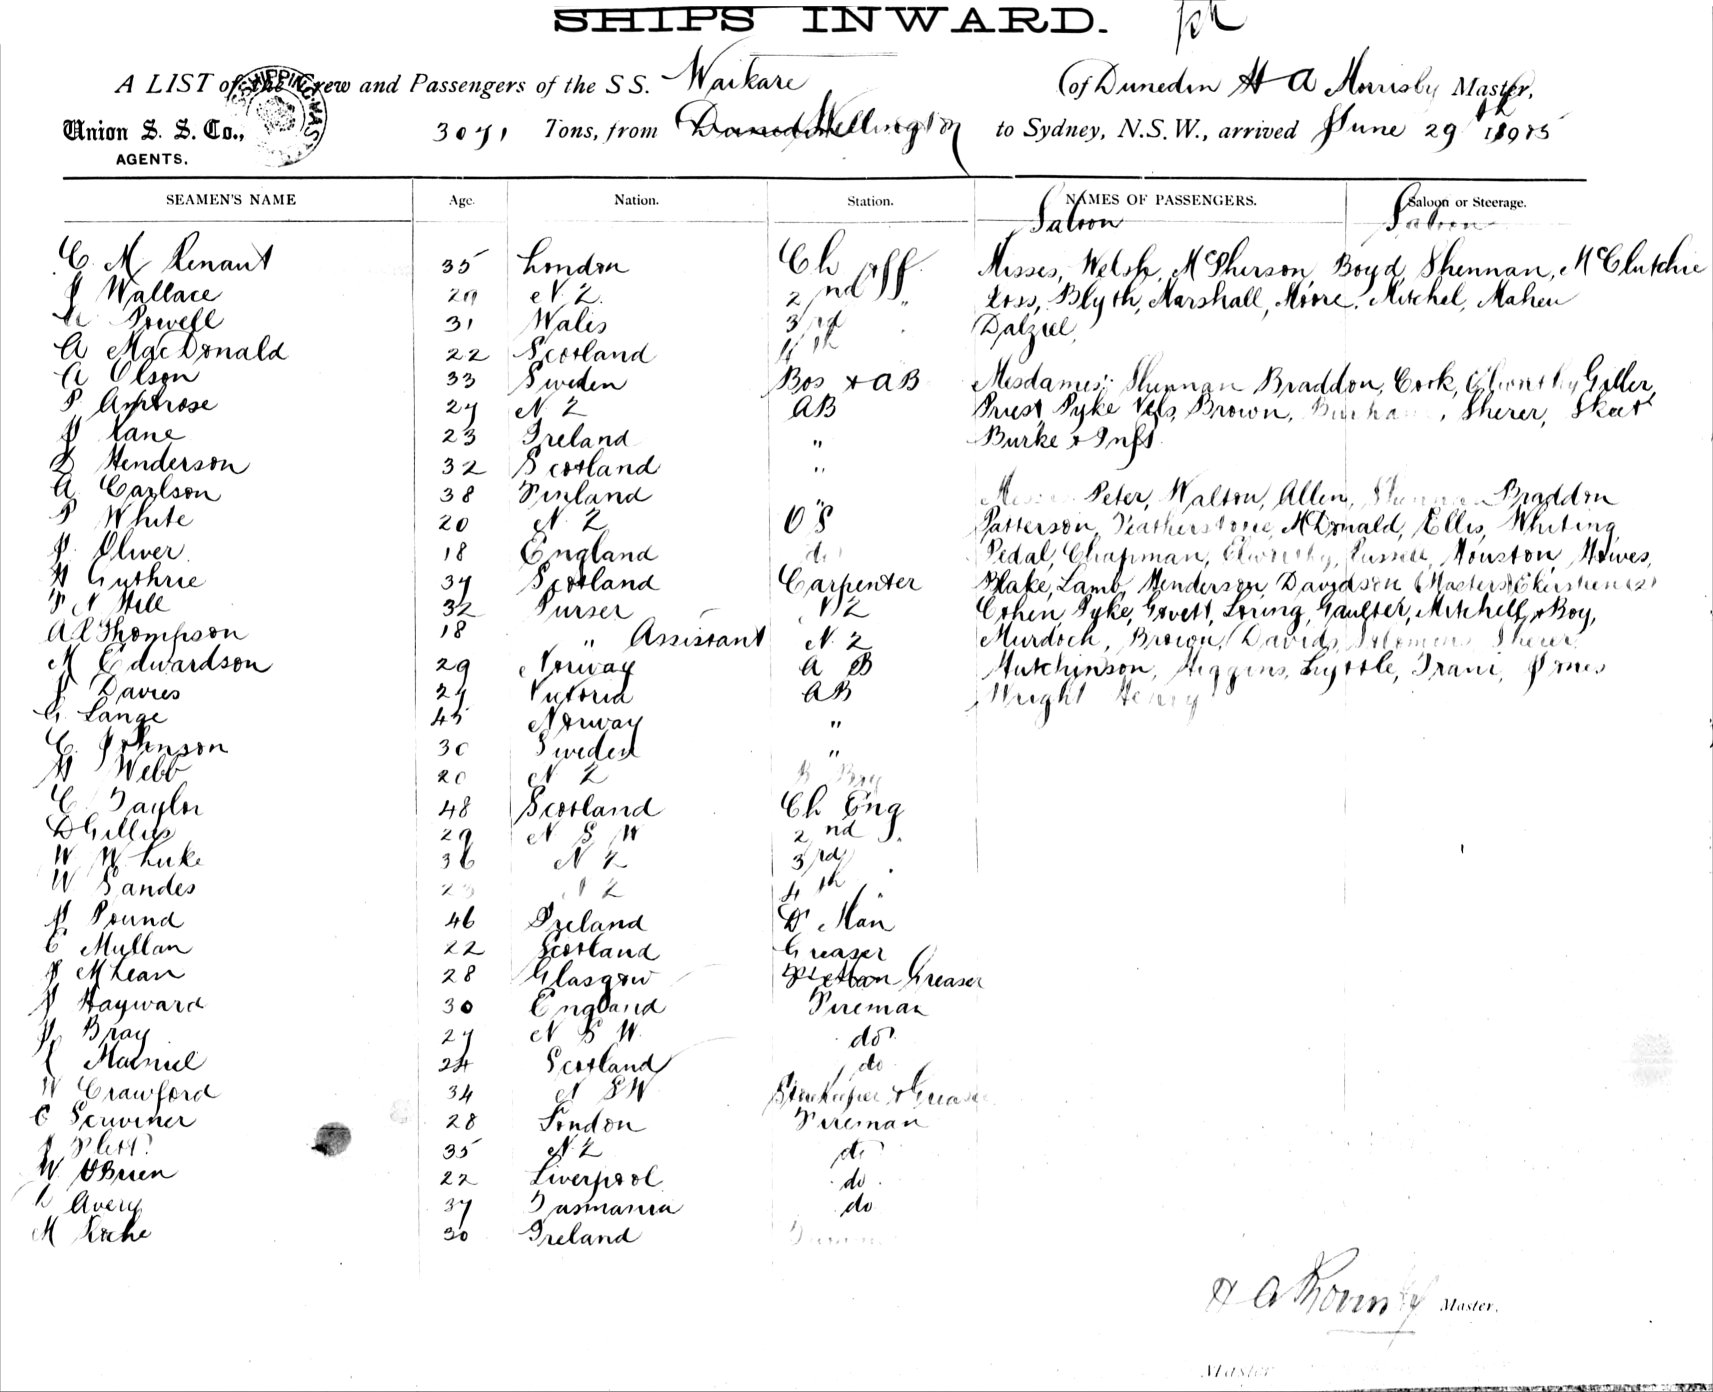 SHIPS INWARD.
A LIST of the Crew and Passengers of the S S. Waikare (of Dunedin H A Morrisby Master,
Union S. S. Co., 3071 Tons, from Wellington to Sydney, N.S.W., arrived June 29th 1905
AGENTS.
SEAMEN'S NAME Age. Nation. Station. NAMES OF PASSENGERS. Saloon or Steerage.
Saloon Saloon
C. M Renaut 35 London Ch Off. Misses, Welsh, McPherson, Boyd, Shennan, McClutchie
J Wallace 29 N. Z. 2nd " Ross, Blyth, Marshall, Moore, Mitchel, Maheu
Powell 31 Wales 3rd Dalziel,
A MacDonald 22 Scotland 4th
A Olson 33 Sweden Bos + AB Mesdames; Shennan Braddon, Cock, Elworthy, Geller,
P Ambrose 27 N Z AB Priest, Pyke, Brown, Sherer, Skeet
J Kane 23 Ireland " Burke + Inft.
D Henderson 32 Scotland "
A Carlson 38 Finland " Peter, Walton, Allen, Braddon
P White 20 N. Z O S Patterson, Featherstone, McDonald, Ellis, Whiting
J. Oliver 18 England do Pedal, Chapman, Elworthy, Russell, Houston, Howes,
H Guthrie 37 Scotland Carpenter Blake, Lamb, Henderson, Davidson
P N Hill 32 Purser N Z Cohen, Pyke, Govett, Loring, Gaulter, Mitchell, + Boy,
A R Thompson 18 " Assistant N. Z Murdoch, Brown, Davids, Solomons, Sherer
M Edwardson 29 Norway A B Hutchinson, Higgins, Lyttle, Irani, Jones
J Davies 27 Victoria AB Wright Henry
G Lange 45 Norway "
C. Johnson 30 Sweden "
H Webb 20 N Z B Boy
C. Taylor 48 Scotland Ch Eng
D Gillies 29 N S W 2nd
W W Luke 36 N Z 3rd
W Sandes 23 N Z 4th "
J Pound 46 Ireland D Man
C Mullan 22 Scotland Greaser
J McLean 28 Glasgow Greaser
J Hayward 30 England Fireman
J Bray 27 N S W. do
24 Scotland do
W Crawford 34 N S W Storekeeper + Greaser
C Scriviner 28 London Fireman
J 35 N. Z do
W. O'Brien 22 Liverpool do
Avery 37 Tasmania do
M Roche 30 Ireland
H A Master.
Master